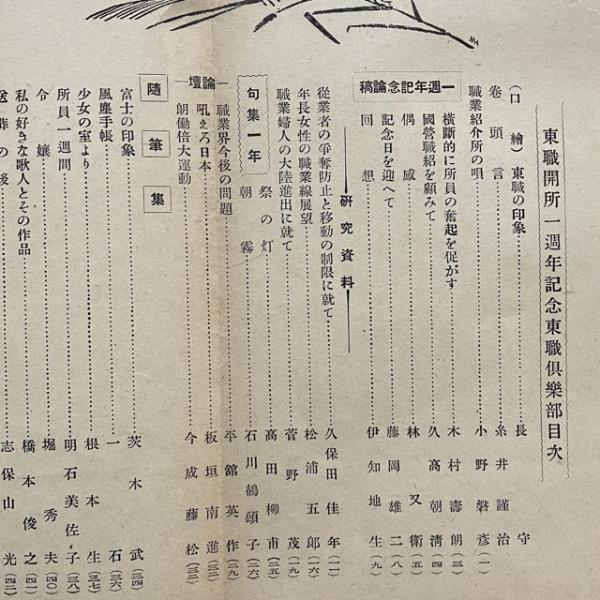 東職開所一週年記念東職倶樂部目次
(口繪)東職の印象……長守
卷頭言……糸井謹治
職業紹介所の唄……小野磐彥(一)
一週年記念論稿
橫斷的に所員の奮起を促がす……木村壽朗(三)
國營職紹を顧みて……久高朝淸(四)
偶感……林又衞(五)
記念日を迎へて……藤岡雄二(八)
回想……伊知地生(九)
硏究資料
從業者の爭奪防止と移動の制限に就て……久保田佳年(一一)
年長女性の職業線展望……松浦五郎(一六)
職業婦人の大陸進出に就て……菅野茂(一九)
句集一年
祭の灯……高田柳市(二五)
朝霧……石川鶴頭子(二六)
論壇
職業界今後の問題……平舘英作(二九)
吼えろ日本……板垣南進(三一)
朗働倍大運動……今成藤松(三三)
隨筆集
富士の印象……茨木武(三四)
風塵手帳……一石(三六)
少女の室より……根本生(三七)
所員一週間……明石美佐子(三八)
令孃……堀秀夫(四〇)
私の好きな歌人とその作品……橋本俊之(四一)
送葬の後……志保山光(四二)